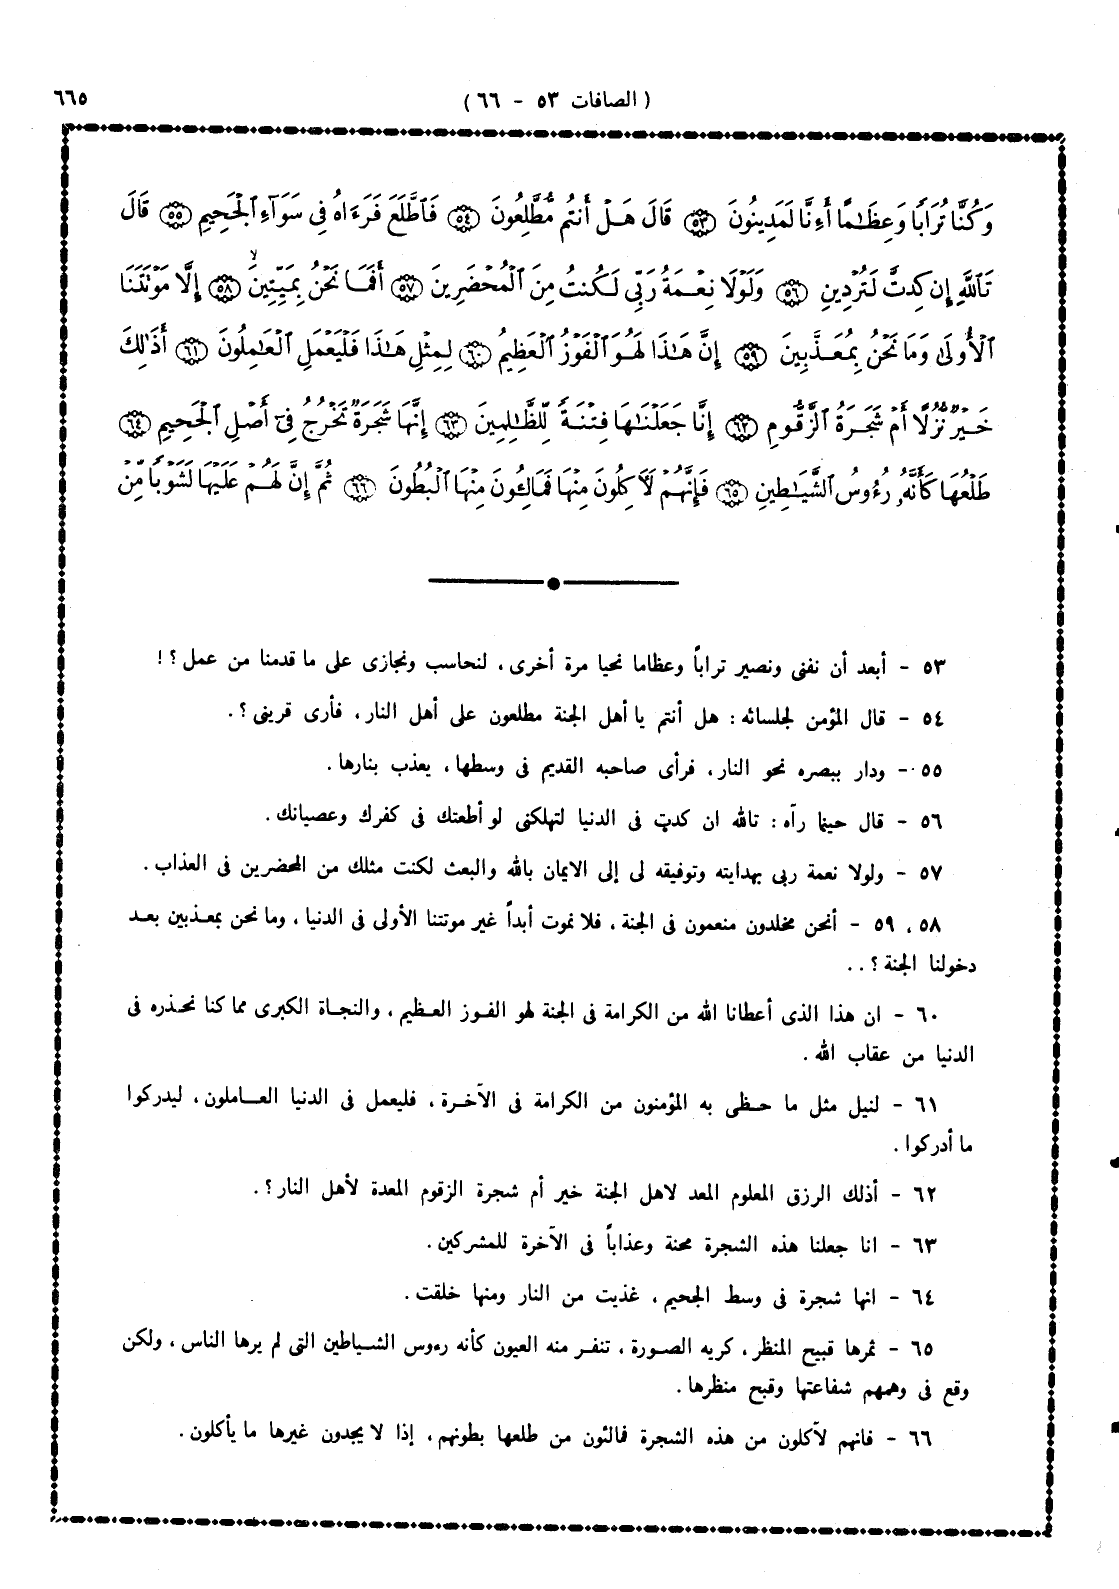 ( الصافات ٥٣ - ٦٦ ) ٦٦٥
وَكُنَّا تُرَابًا وَعِظَٰمًا أَءِنَّا لَمَدِينُونَ ٥٣ قَالَ هَلْ أَنتُم مُّطَّلِعُونَ ٥٤ فَٱطَّلَعَ فَرَءَاهُ فِى سَوَآءِ ٱلْجَحِيمِ ٥٥ قَالَ
تَٱللَّهِ إِن كِدتَّ لَتُرْدِينِ ٥٦ وَلَوْلَا نِعْمَةُ رَبِّى لَكُنتُ مِنَ ٱلْمُحْضَرِينَ ٥٧ أَفَمَا نَحْنُ بِمَيِّتِينَ ٥٨ إِلَّا مَوْتَتَنَا
ٱلْأُولَىٰ وَمَا نَحْنُ بِمُعَذَّبِينَ ٥٩ إِنَّ هَٰذَا لَهُوَ ٱلْفَوْزُ ٱلْعَظِيمُ ٦٠ لِمِثْلِ هَٰذَا فَلْيَعْمَلِ ٱلْعَٰمِلُونَ ٦١ أَذَٰلِكَ
خَيْرٌ نُّزُلًا أَمْ شَجَرَةُ ٱلزَّقُّومِ ٦٢ إِنَّا جَعَلْنَٰهَا فِتْنَةً لِّلظَّٰلِمِينَ ٦٣ إِنَّهَا شَجَرَةٌ تَخْرُجُ فِىٓ أَصْلِ ٱلْجَحِيمِ ٦٤
طَلْعُهَا كَأَنَّهُۥ رُءُوسُ ٱلشَّيَٰطِينِ ٦٥ فَإِنَّهُمْ لَءَاكِلُونَ مِنْهَا فَمَالِـُٔونَ مِنْهَا ٱلْبُطُونَ ٦٦ ثُمَّ إِنَّ لَهُمْ عَلَيْهَا لَشَوْبًا مِّنْ
٥٣ - أبعد أن نفنى ونصير تراباً وعظاما نحيا مرة أخرى ، لنحاسب ونجازى على ما قدمنا من عمل ؟ !
٥٤ - قال المؤمن لجلسائه : هل أنتم يا أهل الجنة مطلعون على أهل النار ، فأرى قرينى ؟ .
٥٥ - ودار ببصره نحو النار ، فرأى صاحبه القديم فى وسطها ، يعذب بنارها .
٥٦ - قال حينما رآه : تالله ان كدت فى الدنيا لتهلكنى لو أطعتك فى كفرك وعصيانك .
٥٧ - ولولا نعمة ربى بهدايته وتوفيقه لى إلى الايمان بالله والبعث لكنت مثلك من المحضرين فى العذاب .
٥٨ ، ٥٩ - أنحن مخلدون منعمون فى الجنة ، فلا نموت أبداً غير موتتنا الأولى فى الدنيا ، وما نحن بمعذبين بعد
دخولنا الجنة ؟ . .
٦٠ - ان هذا الذى أعطانا الله من الكرامة فى الجنة لهو الفوز العظيم ، والنجاة الكبرى مما كنا نحذره فى
الدنيا من عقاب الله .
٦١ - لنيل مثل ما حظى به المؤمنون من الكرامة فى الآخرة ، فليعمل فى الدنيا العاملون ، ليدركوا
ما أدركوا .
٦٢ - أذلك الرزق المعلوم المعد لاهل الجنة خير أم شجرة الزقوم المعدة لأهل النار ؟ .
٦٣ - انا جعلنا هذه الشجرة محنة وعذاباً فى الآخرة للمشركين .
٦٤ - انها شجرة فى وسط الجحيم ، غذيت من النار ومنها خلقت .
٦٥ - ثمرها قبيح المنظر ، كريه الصورة ، تنفر منه العيون كأنه رءوس الشياطين التى لم يرها الناس ، ولكن
وقع فى وهمهم شفاعتها وقبح منظرها .
٦٦ - فانهم لآكلون من هذه الشجرة فمالئون من طلعها بطونهم ، إذا لا يجدون غيرها ما يأكلون .